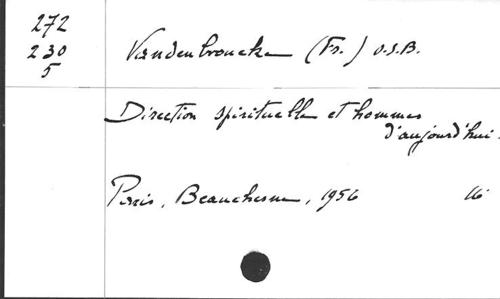 272
230
5
Vandenbroucke (Fr.) O.S.B.
Direction spirituelle et hommes
d'aujourd'hui.
Paris, Beauchesne, 1956
16°